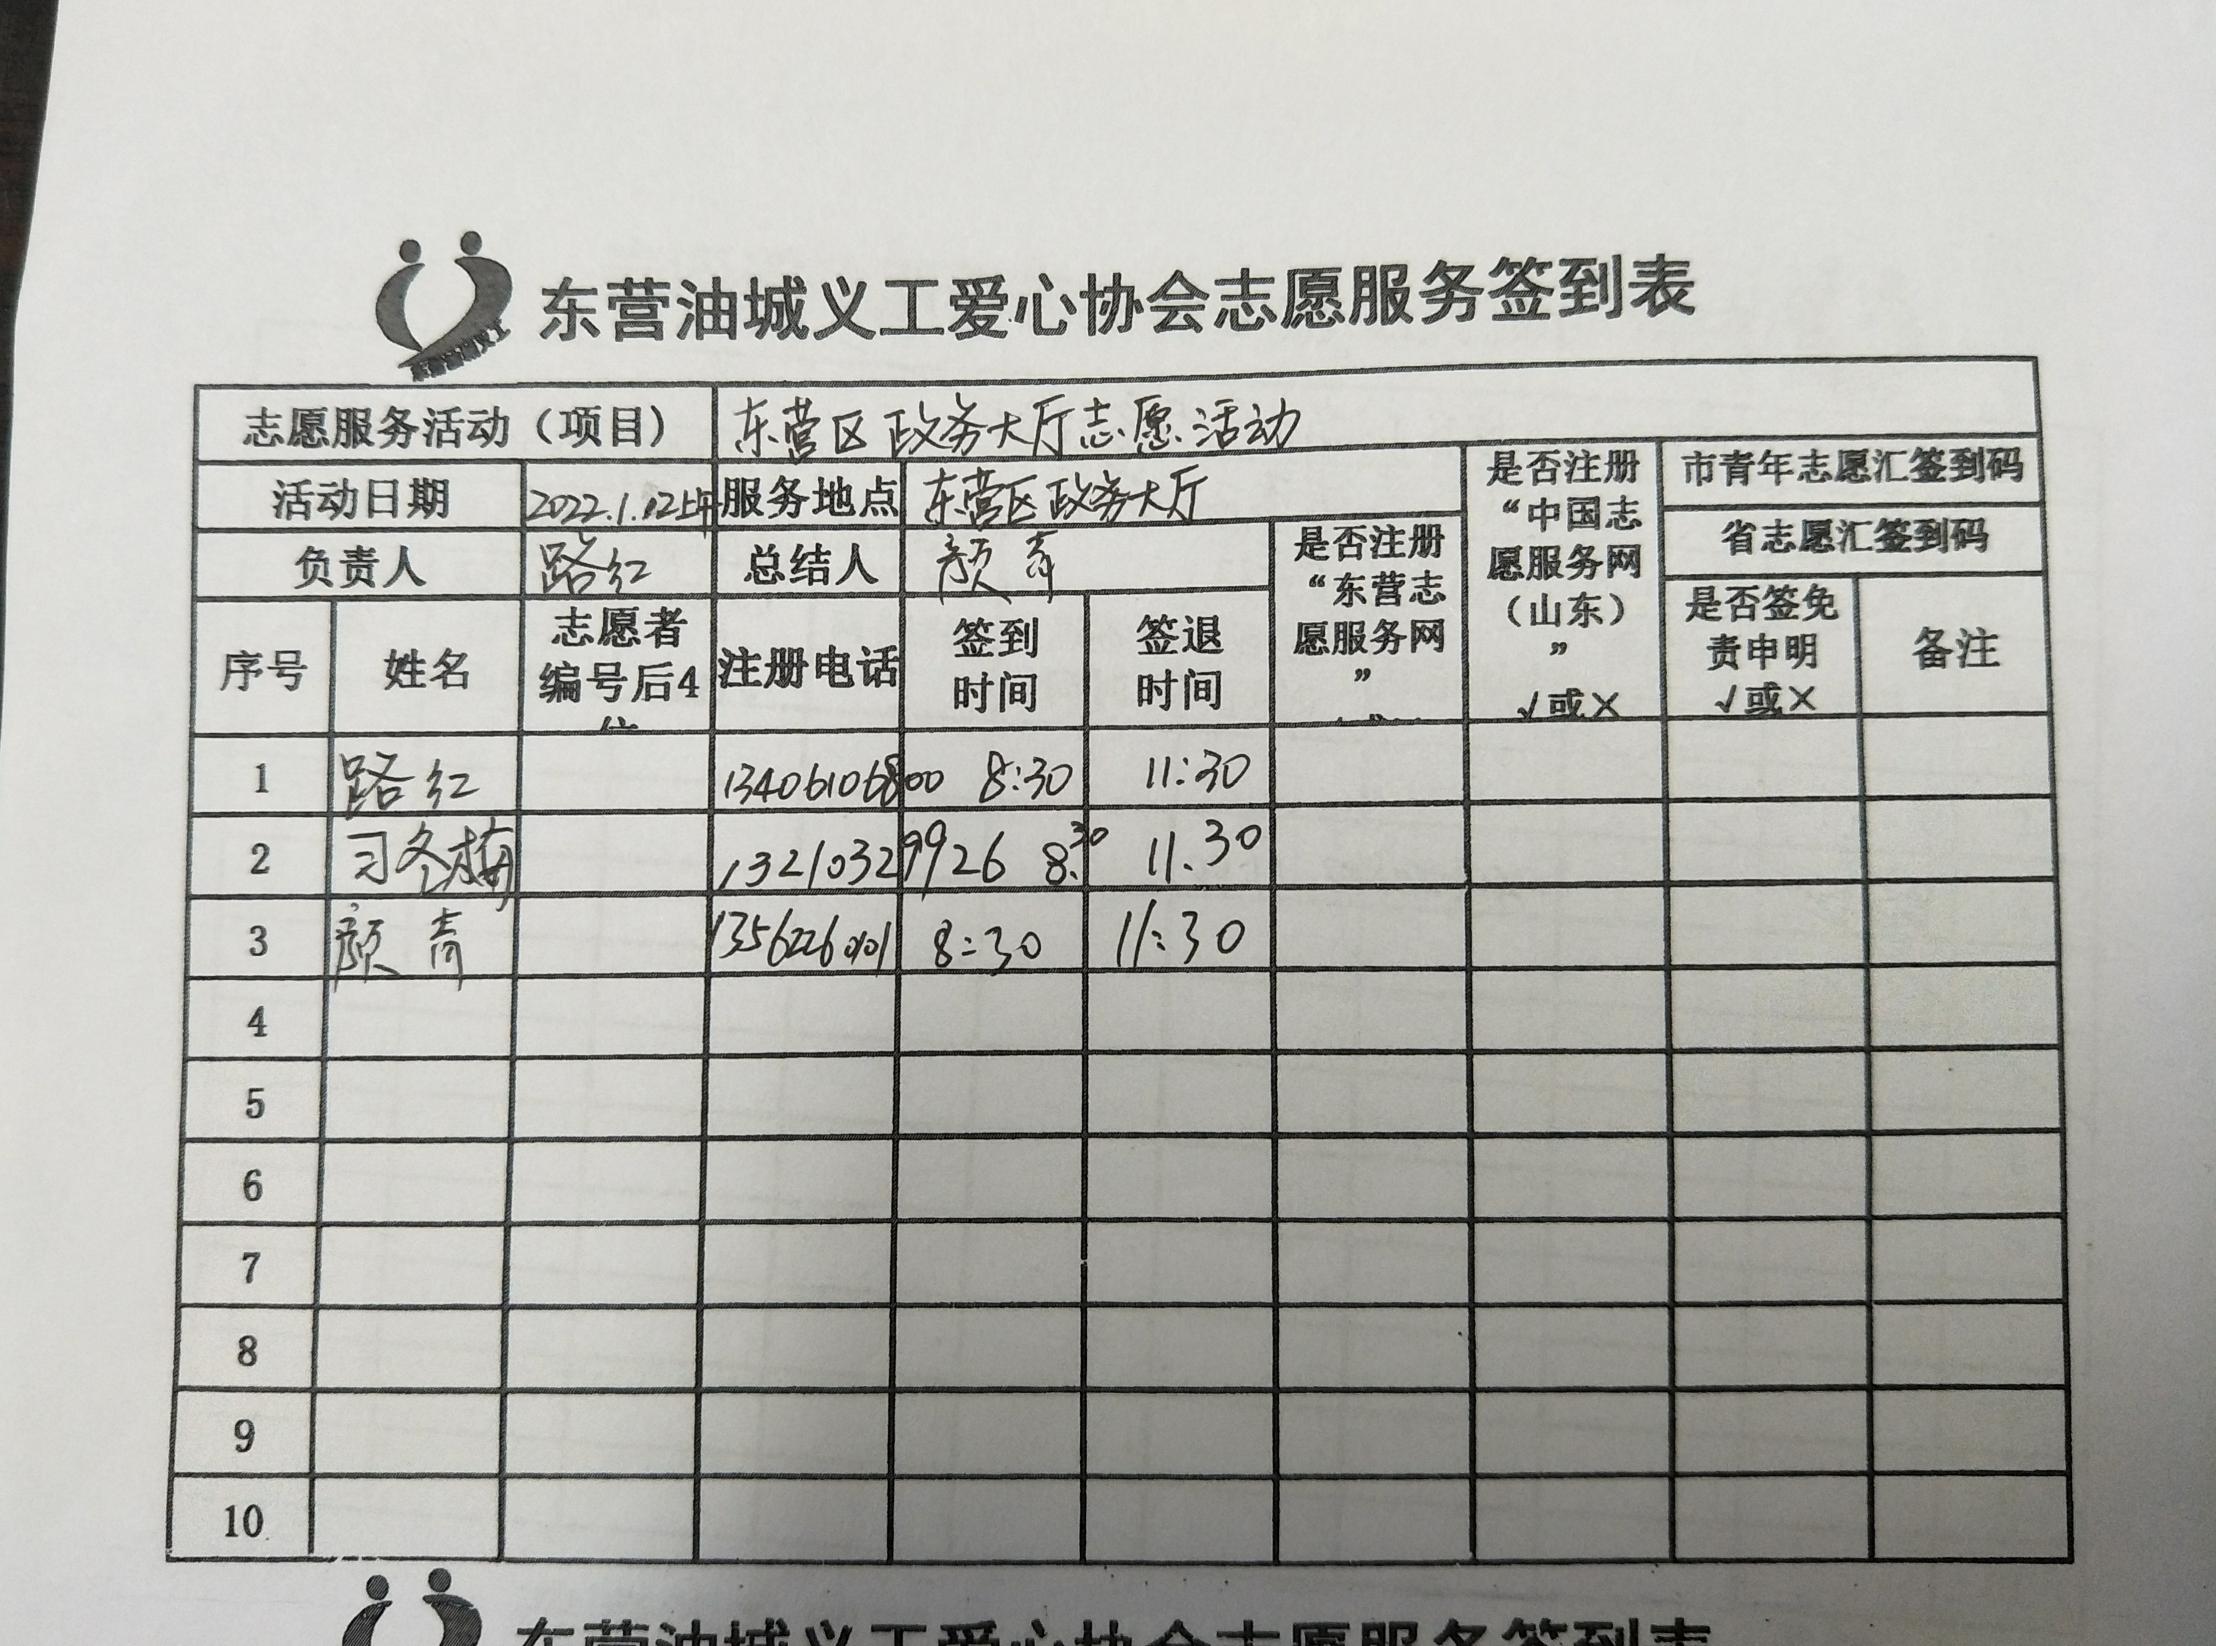 东营油城义工
东营油城义工爱心协会志愿服务签到表
志愿服务活动（项目） 东营区政务大厅志愿活动
活动日期 2022.1.12上午 服务地点 东营区政务大厅
是否注册“中国志愿服务网（山东）” √或×
市青年志愿汇签到码
省志愿汇签到码
负责人 路红 总结人 颜青
是否注册“东营志愿服务网”
序号 姓名 志愿者编号后4位 注册电话 签到时间 签退时间
是否签免责申明 √或× 备注
1 路红 13406106800 8:30 11:30
2 习冬梅 13210329926 8.30 11.30
3 颜青 13562260101 8:30 11:30
4
5
6
7
8
9
10
东营油城义工爱心协会志愿服务签到表